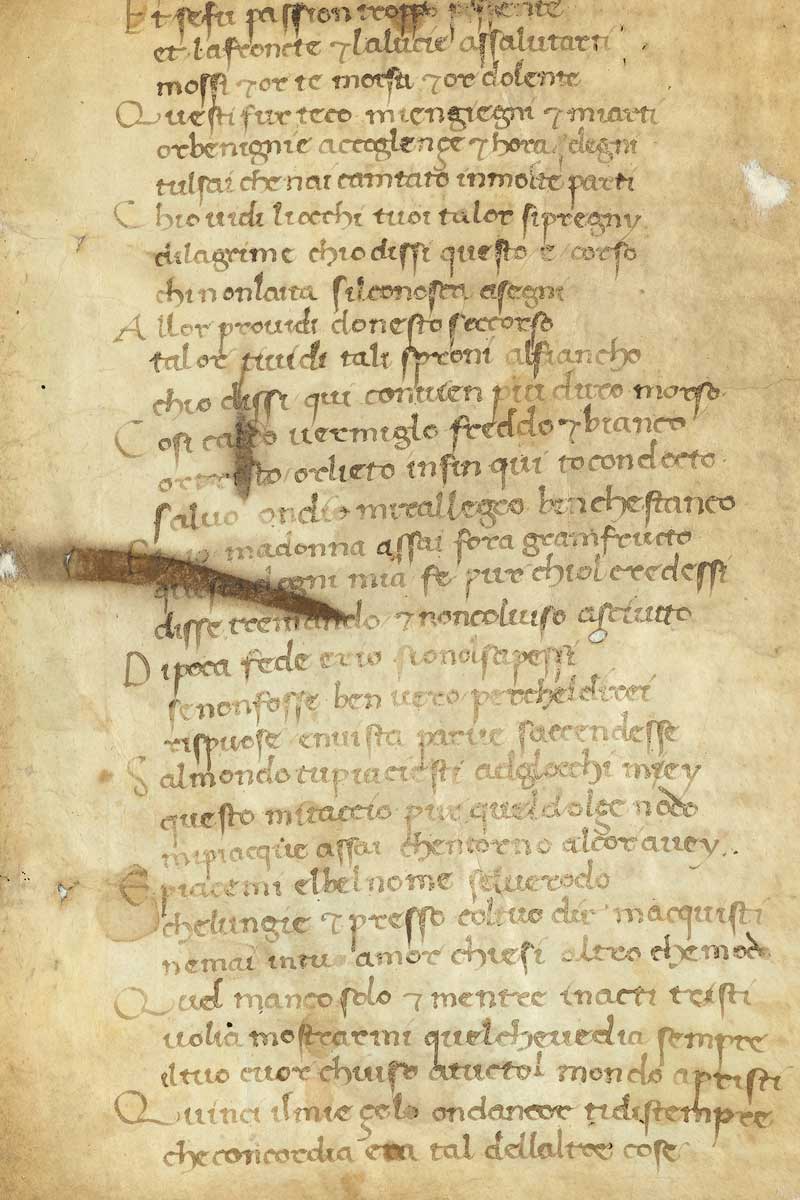 Et sefu passion troppo possente
et lafroncte ⁊ laluce assalutarti
mossi ⁊ or te morsa ⁊ or dolente
Questi fur teco miengiegni ⁊ miarti
or benignie accoglençe ⁊ hora sdegni
tulsai che nai camtato inmolte parti
Chio uidi liocchi tuoi talor sipregny
dilagrime chio dissi questo e corso
chi nonlaita silconosco asegni
Allor prouidi donesto soccorso
talor tiuidi tali sproni alfiancho
chio dissi qui conuien piu duro morso
Cosi caldo uermiglo freddo ⁊ bianco
or tristo or lieto infin qui tocondocto
saluo ondio mirallegro benche stanco
madonna assai fora gramfructo
questo degni mia fe pur chiol credessi
disse tremando ⁊ noncoluiso asciutto
Dipoca fede er io sionolsapessi
senonfosse ben uero perche ldirei
rispuose enuista parue saccendesse
Salmondo tupiaciesti adglocchi miey
questo mitaccio pur quel dolçe nodo
mipiacque assai chentorno alcor auey..
E piacemi elbel nome seluerodo
chelungie ⁊ presso coltuo dir macquisti
nemai intu amor chiesi altro chemodo
Quel manco solo ⁊ mentre inacti tristi
uolia mostrarmi quelcheuedia sempre
iltuo cuor chiuso atuctol mondo apristi
Quinci ilmie gelo ondancor tidistempre
checoncordia era tal dellaltre cose